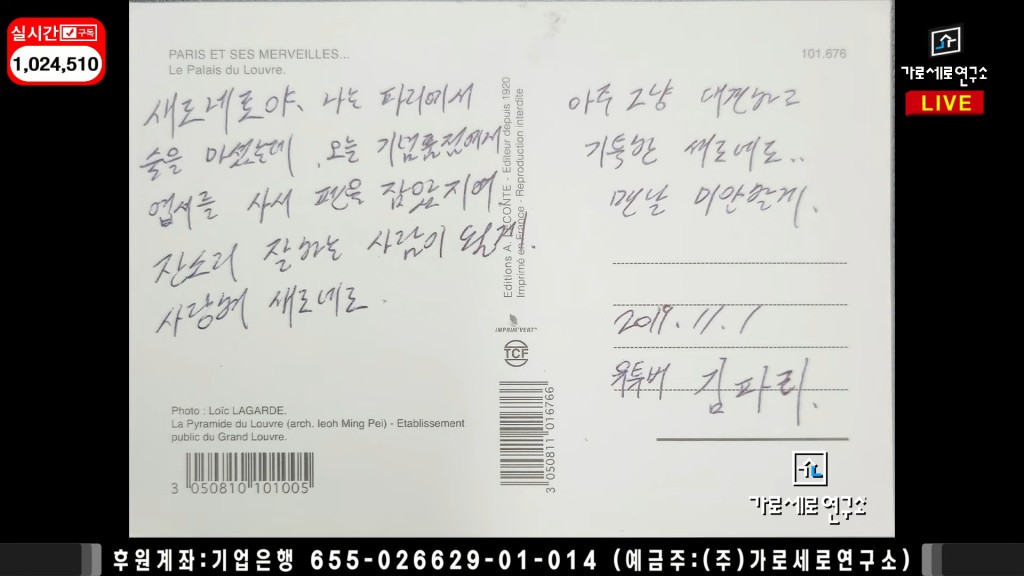 실시간 구독
1,024,510
PARIS ET SES MERVEILLES...
Le Palais du Louvre.
101.676
가로세로연구소
LIVE
새로네로야, 나는 파리에서
술을 마셨는데, 오늘 기념품점에서
엽서를 사서 펜을 잡았지여.
잔소리 잘하는 사람이 될게.
사랑해 새로네로.
Editions A. LECONTE - Editeur depuis 1920
Imprimé en France - Reproduction interdite
아주 그냥 대견하고
기특한 새로네로..
맨날 미안할게.
2019.11.1
유투버 김파리.
IMPRIM'VERT
TCF
Photo : Loïc LAGARDE.
La Pyramide du Louvre (arch. Ieoh Ming Pei) - Etablissement
public du Grand Louvre.
3 050810 101005
3 050811 016766
가로세로연구소
후원계좌:기업은행 655-026629-01-014 (예금주:(주)가로세로연구소)